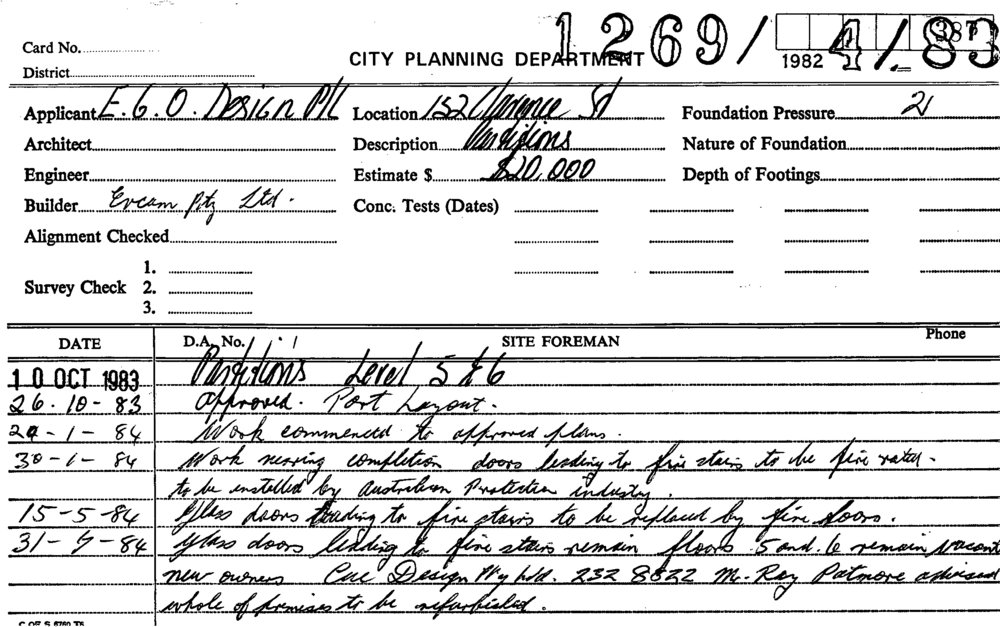 1269/4/83
Card No.
CITY PLANNING DEPARTMENT
1982
387
District
Applicant E. G. O. Design P/L Location 152 Clarence St Foundation Pressure 21
Architect Description Partitions Nature of Foundation
Engineer Estimate $ $20,000 Depth of Footings
Builder Evcam Pty Ltd. Conc. Tests (Dates)
Alignment Checked
1.
Survey Check 2.
3.
DATE D.A. No. SITE FOREMAN Phone
10 OCT 1983 Partitions Level 5 & 6
26-10-83 Approved. Part Layout.
24-1-84 Work commenced to approved plans.
30-1-84 Work nearing completion doors leading to fire stairs to be fire rated.
to be installed by Australian Protection industry.
15-5-84 Glass doors leading to fire stairs to be replaced by fire doors.
31-7-84 Glass doors leading to fire stairs remain floors 5 and 6 remain vacant
new owners Cue Design Pty Ltd. 232 8822 Mr. Ray Patmore advised
whole of premises to be refurbished.
C OF S 6760 TS